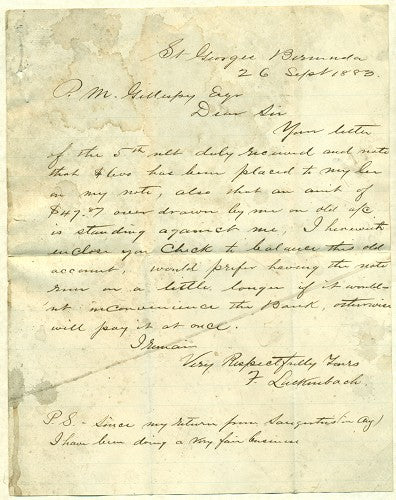 St Georges Bermuda
26 Sept 1883.
P. M. Gillespy Esqr
Dear Sir
Your letter
of the 5th ult duly received and note
that has been placed to my
on my note, also that an amt of
$47.87 over drawn by me on old a/c
is standing against me, I herewith
inclose you Check to balance this old
account, would prefer having the note
run on a little longer if it would-
n't inconvenience the Bank, otherwise
will pay it at once.
I remain
Very Respectfully Yours
F. Luckenbach.
P.S. Since my return from Saugerties (in Aug)
I have been doing a very fair business